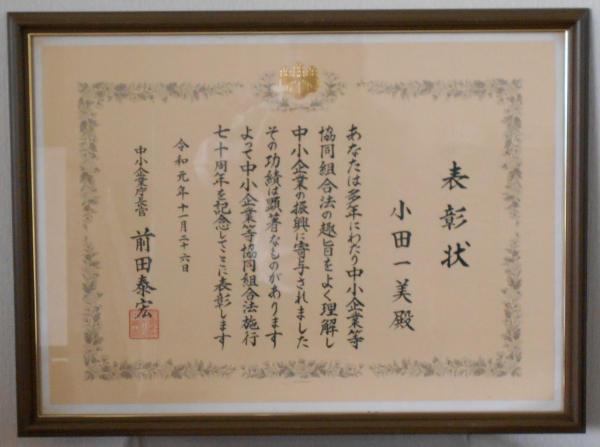 表彰状
小田一美殿
あなたは多年にわたり中小企業等
協同組合法の趣旨をよく理解し
中小企業の振興に寄与されました
その功績は顕著なものがあります
よって中小企業等協同組合法施行
七十周年を記念してここに表彰します
令和元年十一月二十六日
中小企業庁長官 前田泰宏